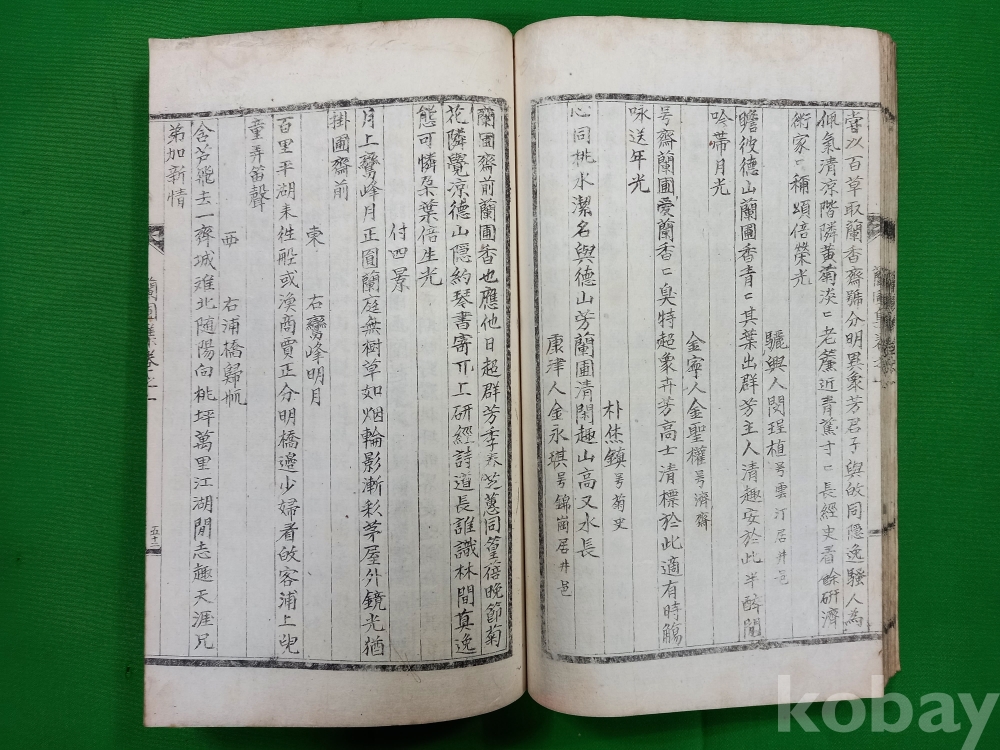 嘗以百草取蘭香齋號分明異象芳君子與皈同隱逸騷人為
佩氣清凉階隣黃菊淡〻老籬近青蔦寸〻長經史看餘研濟
術家〻稱頌倍榮光
驪興人閔珵植号雲汀居井邑
瞻彼德山蘭圃香青〻其葉出群芳主人清趣安於此半醉閒
吟帶月光
金寧人金聖權号濟齋
号齋蘭圃愛蘭香〻臭特超衆卉芳高士清標於此適有時觴
咏送年光
朴 鎮号菊史
心同桃水潔名與德山芳蘭圃清閑趣山高又水長
康津人金永琪号錦崗居井邑
蘭圃齋前蘭圃香也應他日超群芳季春芝蕙同篁蓓晚節菊
花隣覺凉德山隱約琴書寄 上研經詩道長誰識林間真逸
態可憐朶葉倍生光
付四景
月上鸞峰月正圓蘭庭無樹草如烟輪影漸彩茅屋外鏡光猶
掛圃齋前
東 右鸞峰明月
百里平湖来徃船或漁商賈正分明橋邊少婦看皈客浦上兒
童弄笛聲
西 右浦橋歸帆
含芦飛去一齊城难北随陽向桃坪萬里江湖閒志趣天涯兄
弟加新情
蘭圃集卷之一
五十二
kobay